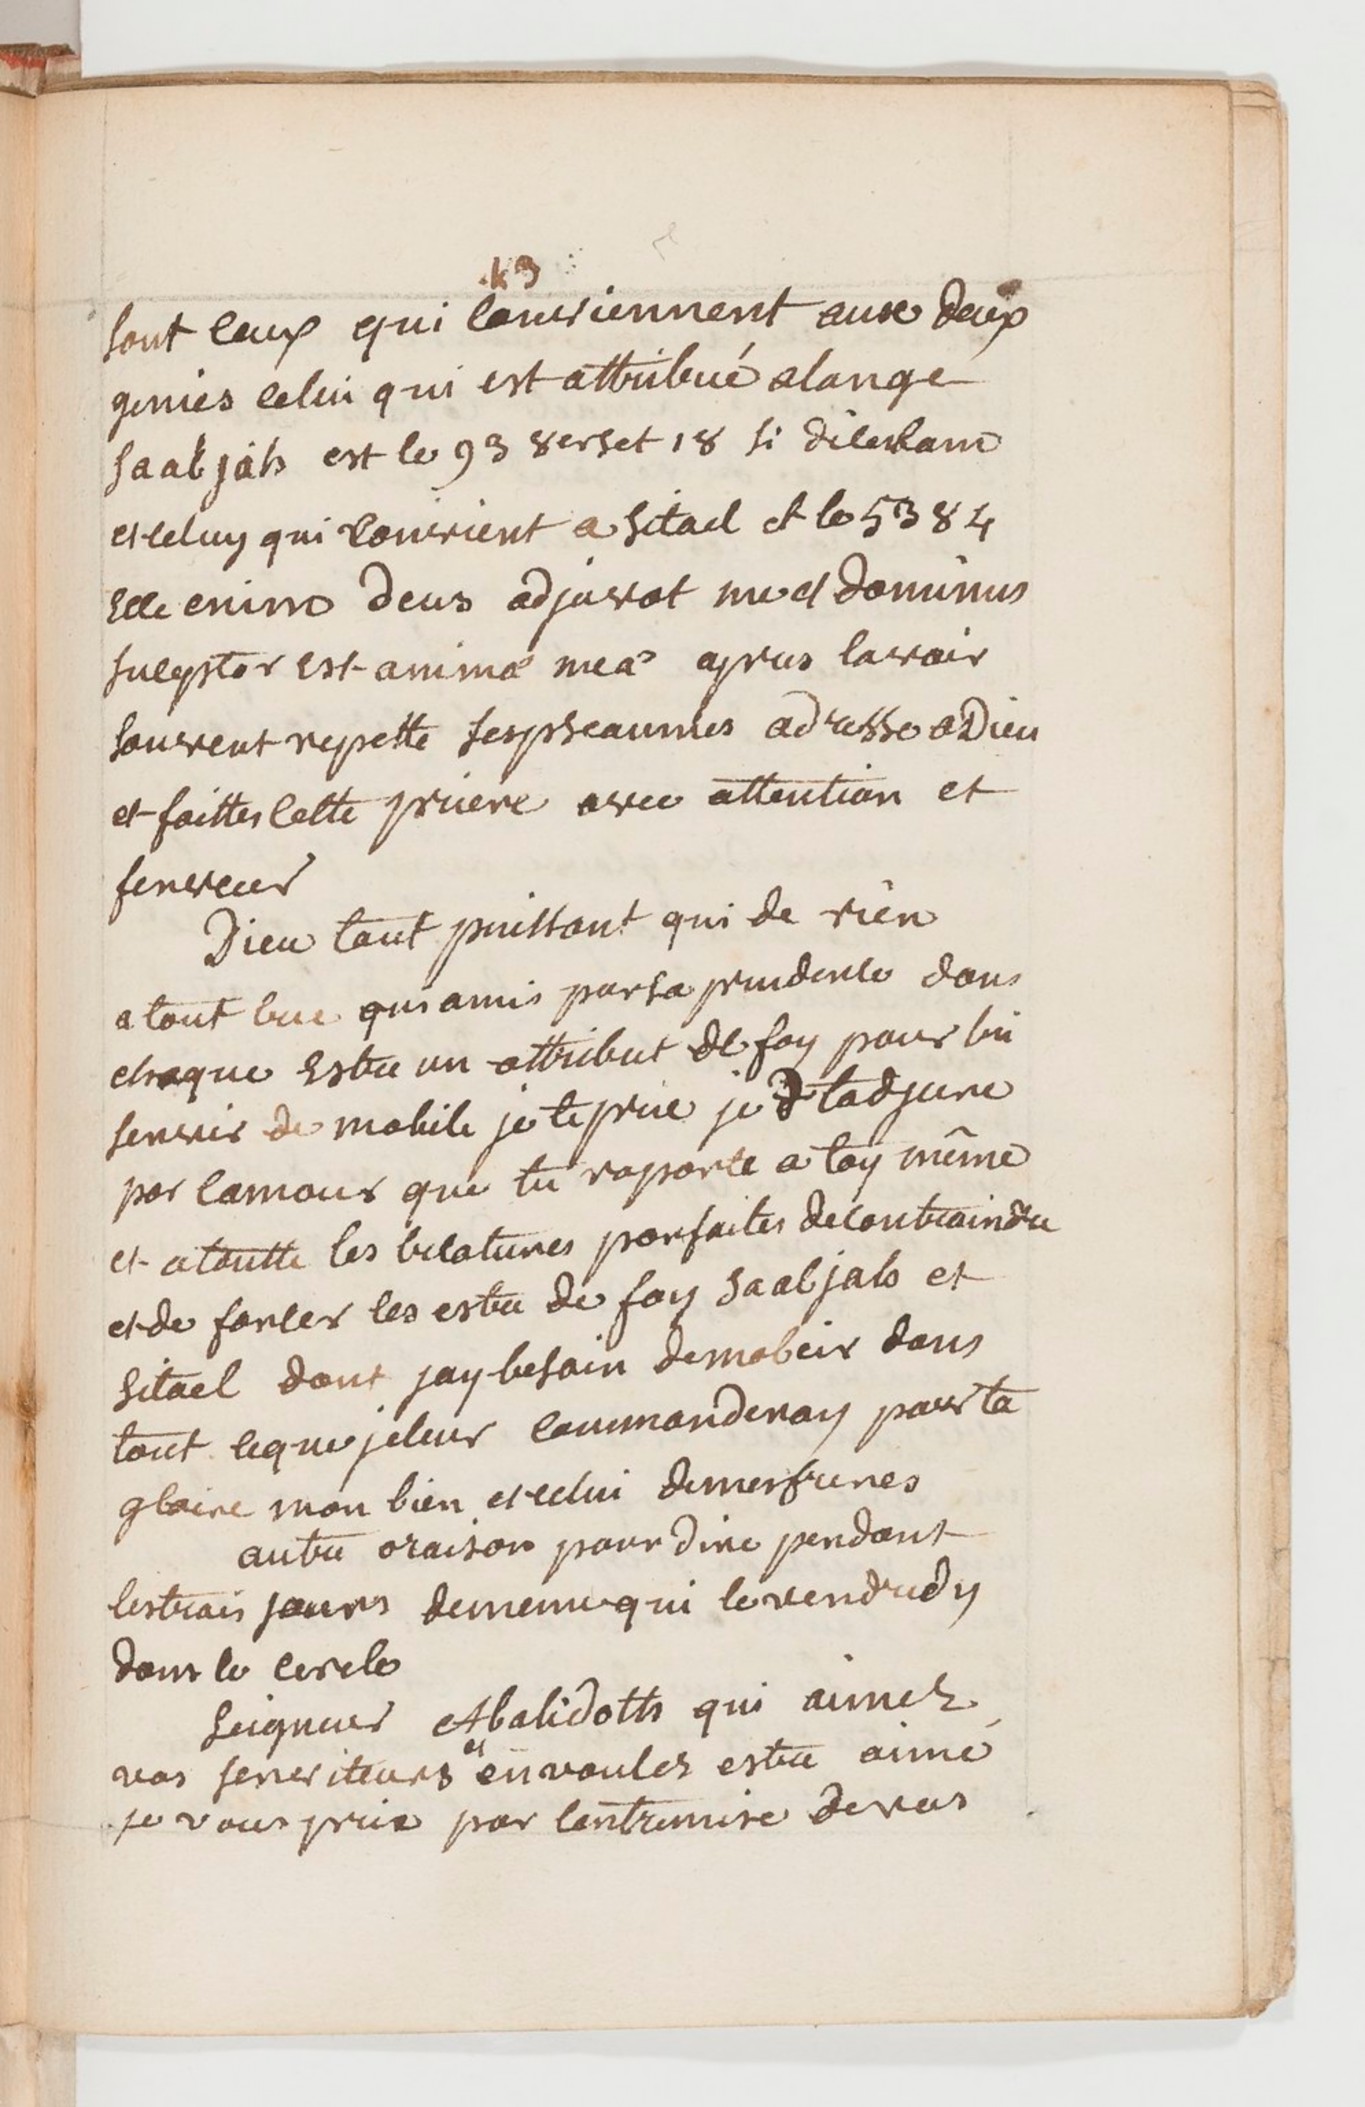 43
sont ceux qui conviennent aux deux
genies celui qui est attribué alange
saabjah est le 93 verset 18 si dicebam
et celuy qui convient a sitael et le 53 v 4
Ecce enim Deus adjuvat me et dominus
suceptor est animæ meæ apres lavoir
souvent repette sespseaumes adresse a Dieu
et faittes cette priere avec attention et
ferveur
Dieu tout puissant qui de rien
a tout cree qui amis par sa prudence dans
chaque estre un attribut de foy pour lui
servir de mobile je te prie je tadjure
par lamour que tu raporte a toy même
et a toutte les creatures parfaites decontraindre
et de forcer les estre de foy saabjah et
sitael dont jay besoin demobeir dans
tout ceque jeleur commanderay pour ta
gloire mon bien et celui demesfreres
autre oraison pour dire pendant
lestrois jours dememe qui le vendredy
dans le cercle
Seigneur Abalidoth qui aimez
vos serviteurs et en voulez estre aimé
je vous prie par lentremise devos